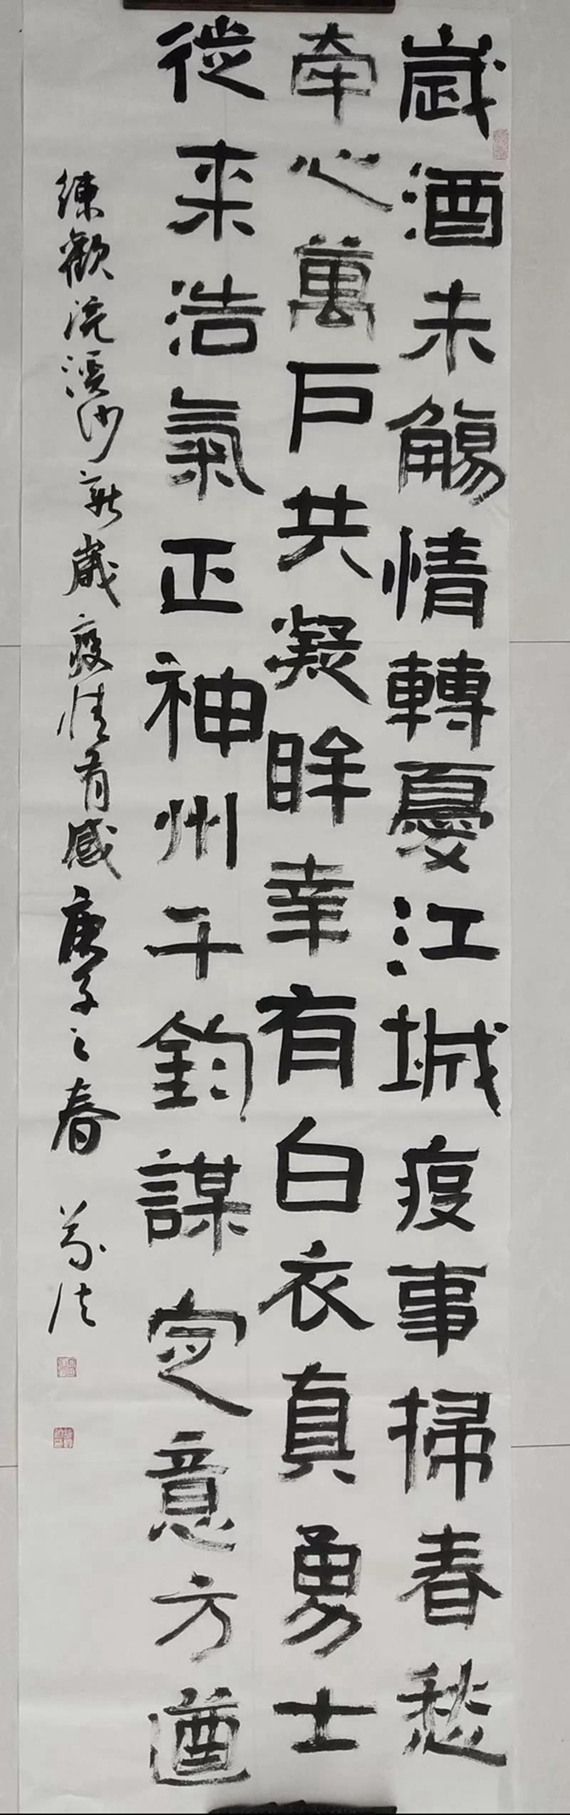 歲酒未觴情轉憂江城疫事掃春愁
牽心萬戶共凝眸幸有白衣真勇士
從來浩氣正神州千鈞謀定意方遒
練歡浣溪沙新歲疫情有感庚子之春